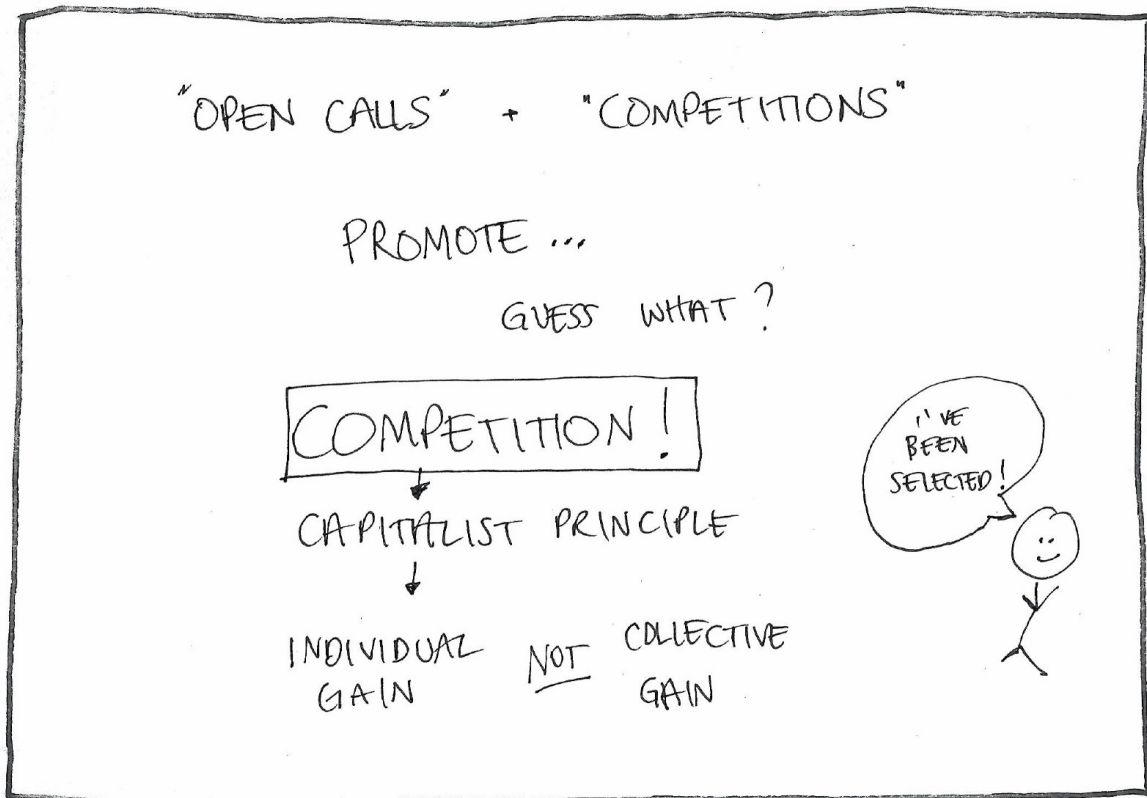 "OPEN CALLS" + "COMPETITIONS"
PROMOTE ...
GUESS WHAT ?
COMPETITION !
CAPITALIST PRINCIPLE
INDIVIDUAL GAIN NOT COLLECTIVE GAIN
I'VE
BEEN
SELECTED!